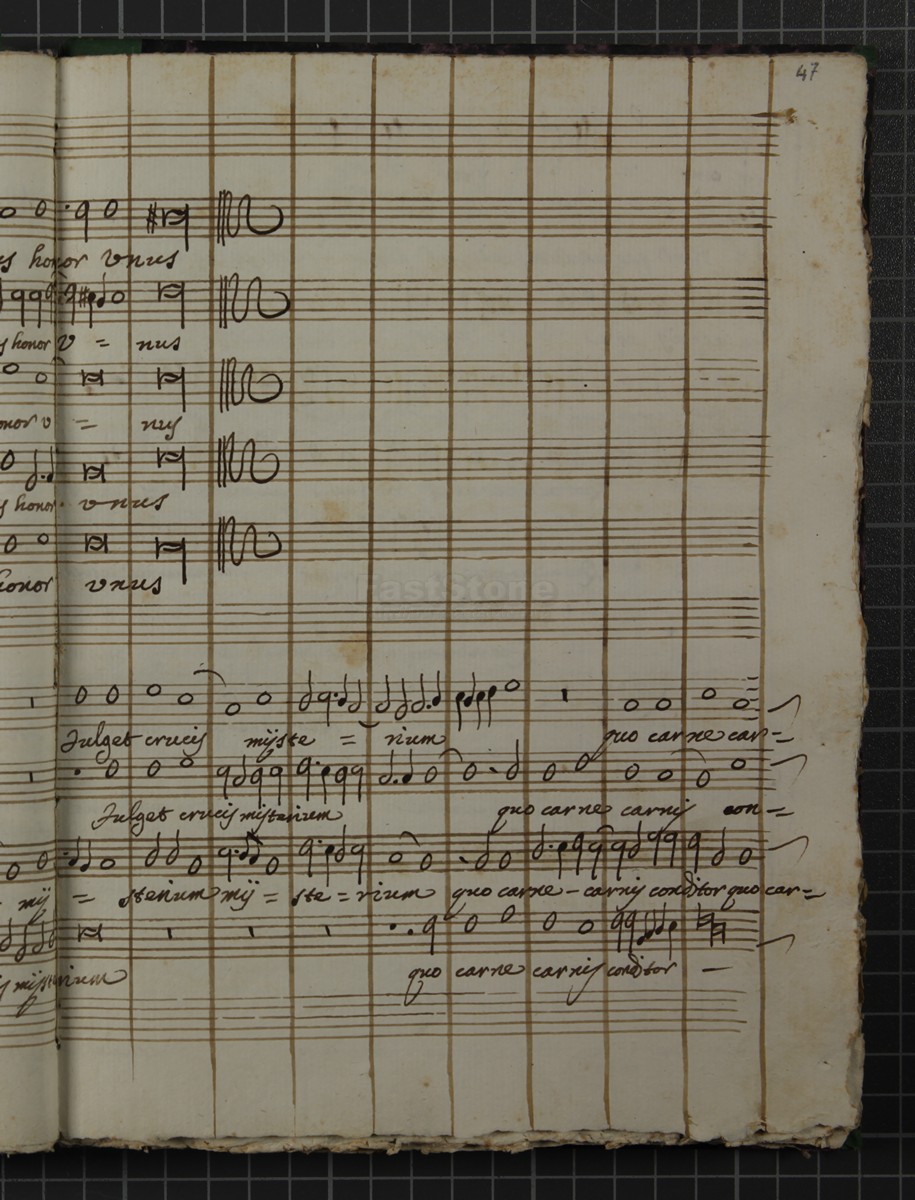 47
honor vnus
honor v = nus
v = nus
honor vnus
honor vnus
FastStone
fulget crucis myste = rium quo carne car =
fulget crucis misterium quo carne carnis con =
mij = sterium mij = ste = rium quo carne - carnis conditor quo car =
quo carne carnis conditor -